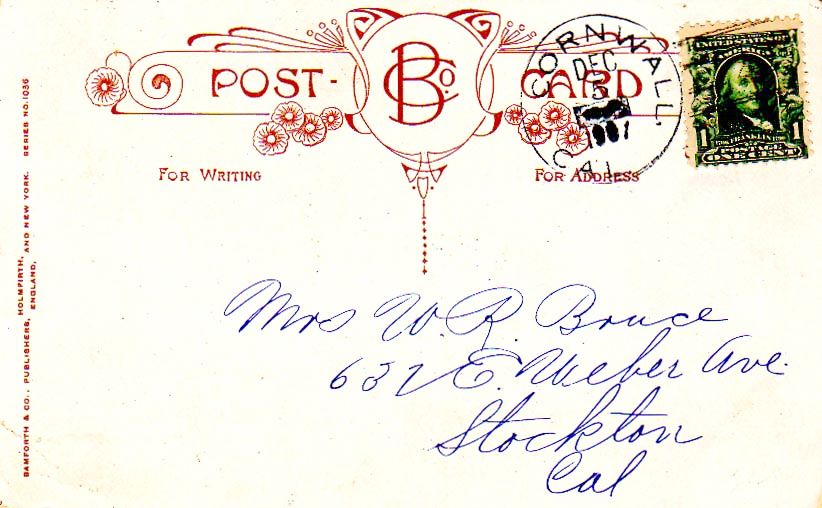 POST-
BCo.
CARD
CORNWALL,
DEC
5
1907
CAL.
UNITED STATES OF
1
FRANKLIN
1
POSTAGE
ONE CENT
FOR WRITING
FOR ADDRESS
BAMFORTH & CO., PUBLISHERS, HOLMFIRTH, ENGLAND, AND NEW YORK. SERIES NO. 1036
Mrs W. R. Bruce
632 E. Weber Ave.
Stockton
Cal